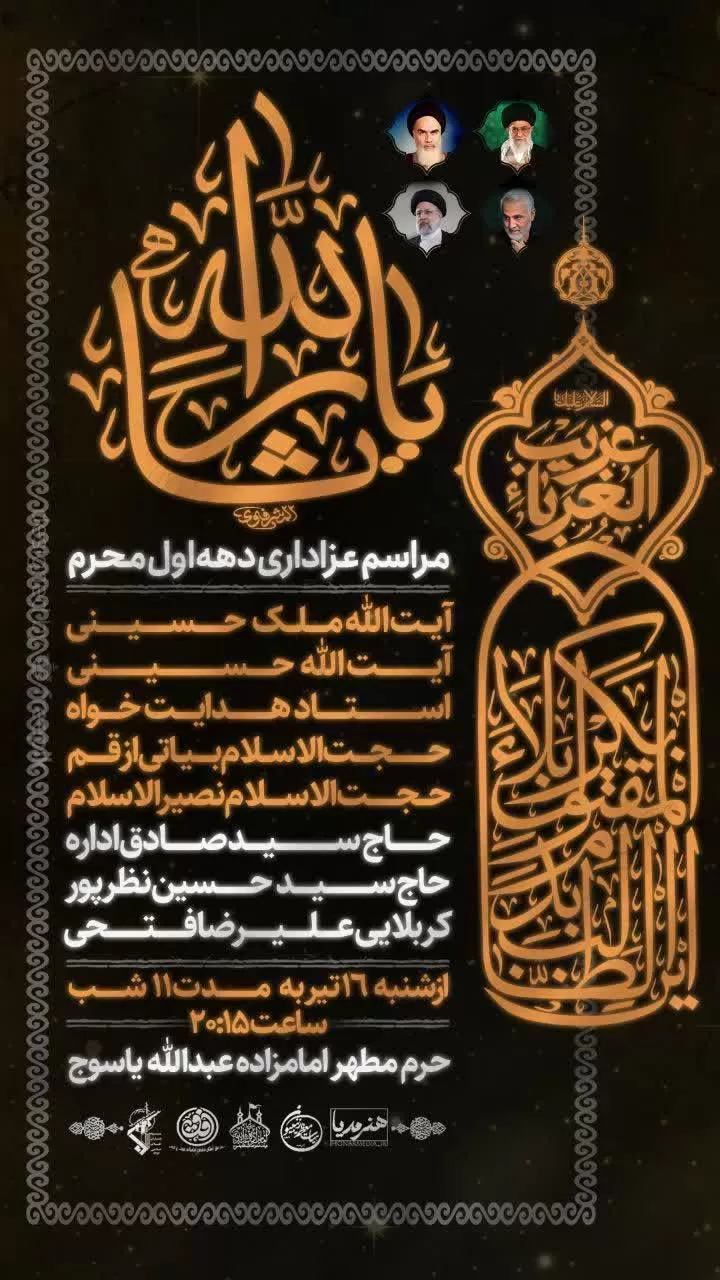 یا ثارالله
السلام علیک یا
غریب الغرباء
این الطالب بدم المقتول بکربلاء
مراسم عزاداری دهه اول محرم
آیت الله ملک حسینی
آیت الله حسینی
استاد هدایت خواه
حجت الاسلام بیاتی از قم
حجت الاسلام نصیرالاسلام
حاج سید صادق اداره
حاج سید حسین نظرپور
کربلایی علیرضا فتحی
از شنبه ۱۶ تیر به مدت ۱۱ شب
ساعت ۲۰:۱۵
حرم مطهر امامزاده عبدالله یاسوج
هنر مدیا
HONARMEDIA_IR